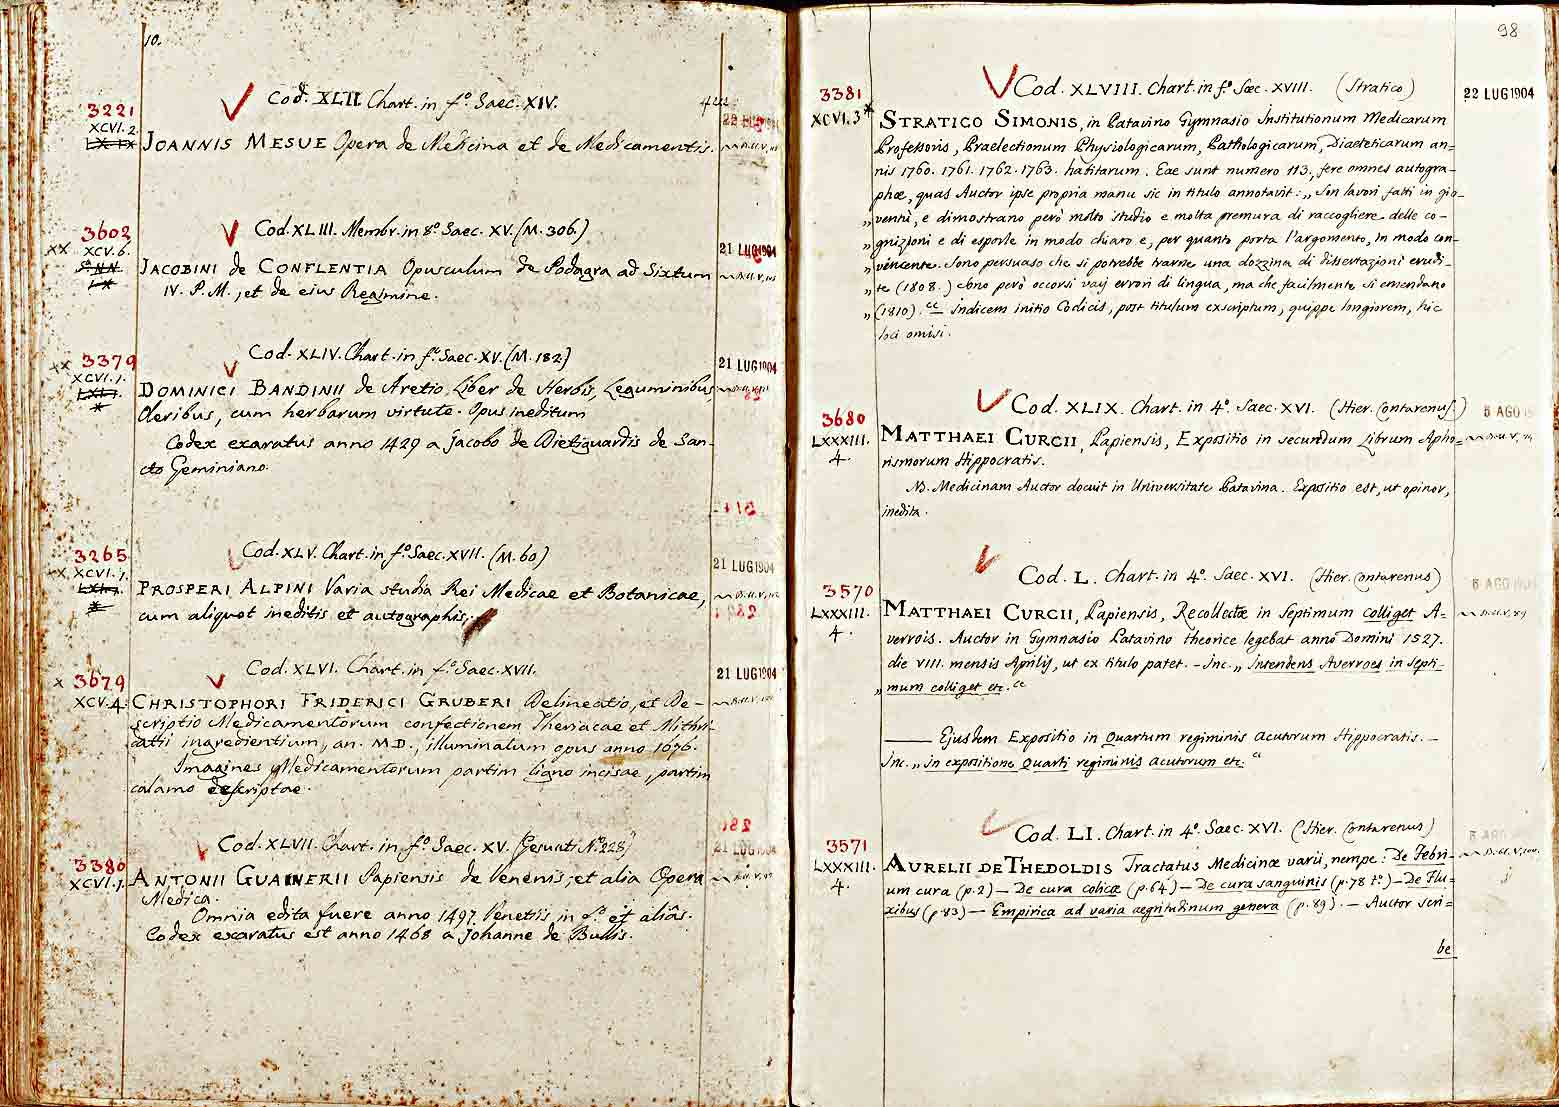 10.
3221
XCVI. 2.
Cod. XLII Chart. in fº. Saec. XIV.
JOANNIS MESUE Opera de Medicina et de Medicamentis.
3602
XX XCV. 6.
Cod. XLIII. Membr. in 8º Saec. XV. (M. 306.)
21 LUG 1904
JACOBINI de CONFLENTIA Opusculum de Podagra ad Sixtum
IV. P. M., et de eius Regimine.
XX 3379
XCVI. 1.
Cod. XLIV. Chart. in fº Saec. XV. (M. 182)
21 LUG 1904
DOMINICI BANDINII de Aretio, Liber de Herbis, Leguminibus,
Oleribus, cum herbarum virtute. Opus ineditum
Codex exaratus anno 1429 a Jacobo de Dietiguardis de San-
cto Geminiano.
3265
XX XCVI. 1.
Cod. XLV. Chart. in fº Saec. XVII. (M. 60)
21 LUG 1904
PROSPERI ALPINI Varia studia Rei Medicae et Botanicae,
cum aliquot ineditis et autographis.
X 3679
XCV. 4.
Cod. XLVI. Chart. in fº Saec. XVII.
21 LUG 1904
CHRISTOPHORI FRIDERICI GRUBERI Delineatio, et De-
scriptio Medicamentorum confectionem Theriacae et Mithri-
datii ingredientium, an. M.D., illuminatum opus anno 1676.
Imagines Medicamentorum partim ligno incisae, partim
calamo descriptae.
3380
XCVI. 1.
Cod. XLVII. Chart. in fº Saec. XV. (Gesuati Nº 228)
21 LUG 1904
ANTONII GUAINERII Papiensis de Venenis, et alia Opera
Medica.
Omnia edita fuere anno 1497. Venetiis in fº. et aliâs.
Codex exaratus est anno 1468 a Johanne de Bullis.
98
3381
XCVI. 3*
Cod. XLVIII. Chart. in fº. Sæc. XVIII. (Stratico)
22 LUG 1904
STRATICO SIMONIS, in Patavino Gymnasio Institutionum Medicarum
Professoris, Praelectionum Physiologicarum, Pathologicarum, Diaeteticarum an=
nis 1760. 1761. 1762. 1763. habitarum. Eae sunt numero 113, fere omnes autogra=
phæ, quas Auctor ipse propria manu sic in titulo annotavit: „Sin lavori fatti in gio-
„ventù, e dimostrano però molto studio e molta premura di raccogliere delle co-
„gnizioni e di esporle in modo chiaro e, per quanto porta l'argomento, in modo con-
„vincente. Sono persuaso che si potrebbe trarne una dozzina di dissertazioni erudi-
„te (1808.) sono però occorsi varj errori di lingua, ma che facilmente si emendano
„(1810). “ Indicem initio Codicis, post titulum exscriptum, quippe longiorem, hic
loci omisi.
3680
LXXXIII.
4.
Cod. XLIX. Chart. in 4º. Sæc. XVI. (Hier. Contarenus)
MATTHAEI CURCII, Papiensis, Expositio in secundum Librum Apho=
rismorum Hippocratis.
NB. Medicinam Auctor docuit in Universitate Patavina. Expositio est, ut opinor,
inedita.
3570
LXXXIII.
4.
Cod. L. Chart. in 4º. Sæc. XVI. (Hier. Contarenus)
MATTHAEI CURCII, Papiensis, Recollectæ in Septimum colliget A-
verrois. Auctor in Gymnasio Patavino theorice legebat anno Domini 1527.
die VIII. mensis Aprilis, ut ex titulo patet. - Inc. „Intendens Averroes in septi-
„mum colliget etc.“
—— Ejusdem Expositio in Quartum regiminis acutorum Hippocratis. —
Inc. „In expositione Quarti regiminis acutorum etc.“
3571
LXXXIII.
4.
Cod. LI. Chart. in 4º. Sæc. XVI. (Hier. Contarenus)
AURELII DE THEDOLDIS Tractatus Medicinæ varii, nempe: De Febri-
um cura (p. 2) — De cura colicæ (p. 64) — De cura sanguinis (p. 78 tº.) — De Flu-
xibus (p. 83) — Empirica ad varia aegritudinum genera (p. 89). — Auctor scri=
be